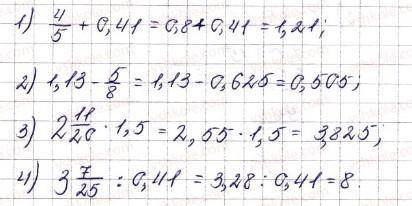 1) 4/5 + 0,41 = 0,8 + 0,41 = 1,21;
2) 1,13 - 5/8 = 1,13 - 0,625 = 0,505;
3) 2 11/20 · 1,5 = 2,55 · 1,5 = 3,825;
4) 3 7/25 : 0,41 = 3,28 : 0,41 = 8.